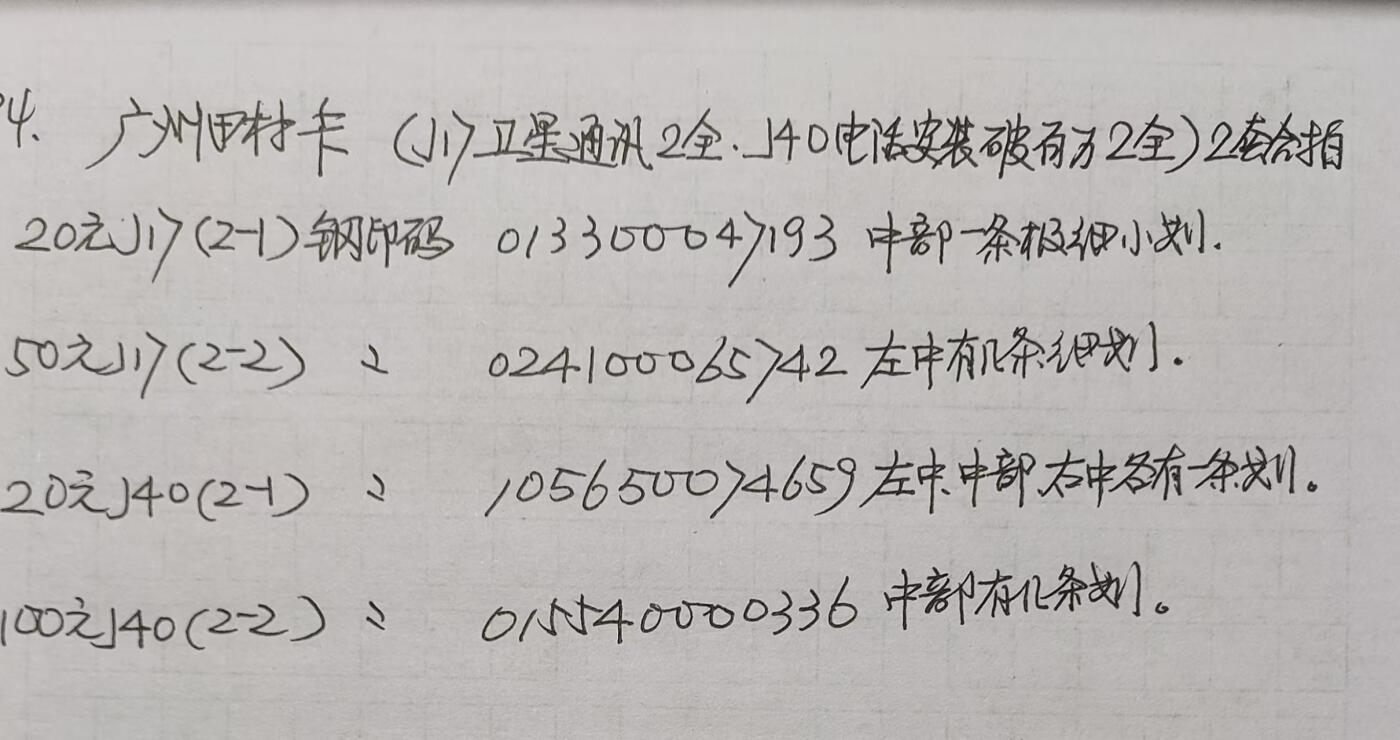 94. 广州田村卡 (J17卫星通讯2全.J40电话安装破百万2全)2套合拍
20元J17(2-1)钢印码 013300047193 中部一条极细小划.
50元J17(2-2) 〃 024100065742 左中有几条细划.
20元J40(2-1) 〃 105650074659 左中、中部、右中各有一条划。
100元J40(2-2) 〃 015540000336 中部有几条划。